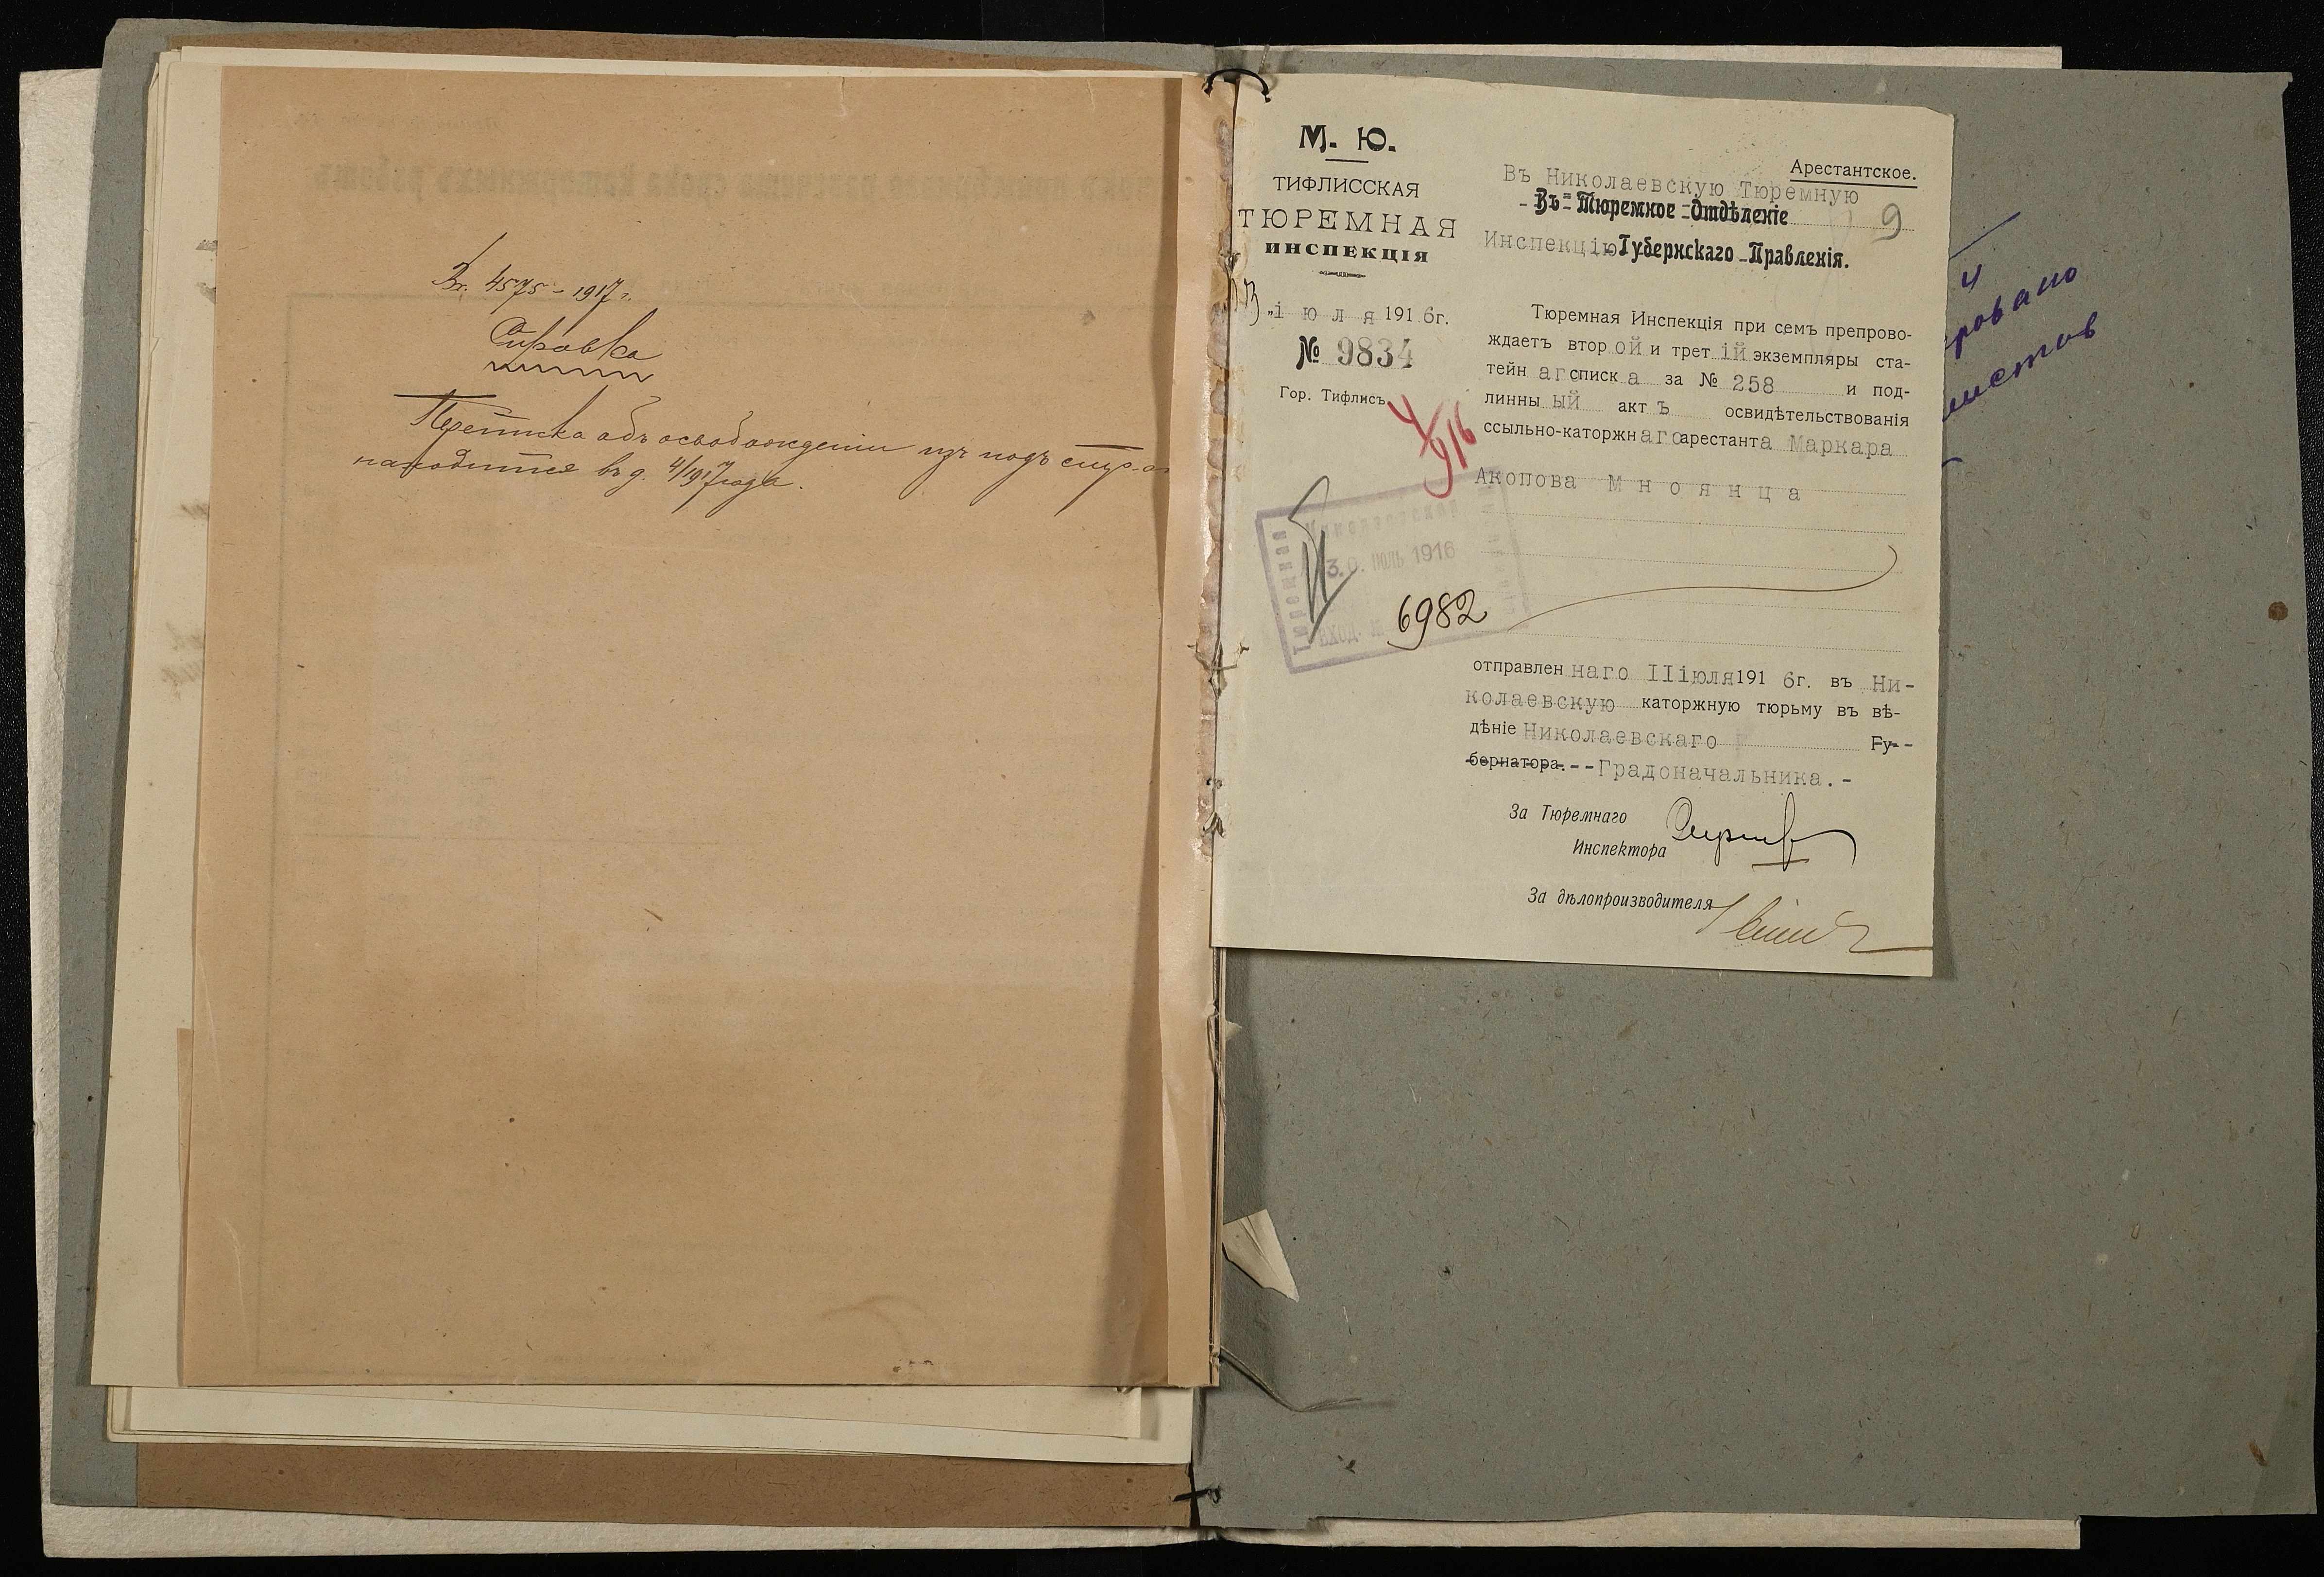 Вх. 4575 - 1917 г.
Справка
Переписка объ освобожденіи изъ подъ стра
находится въ д. 4/1917 года.
М. Ю.
ТИФЛИССКАЯ
ТЮРЕМНАЯ
ИНСПЕКЦІЯ
іюля 1916г.
№ 9834
Гор. Тифлисъ
4/916
Арестантское.
Въ Николаевскую Тюремную
Въ Тюремное Отдѣленіе
9
Инспекцію Губернскаго Правленія.
Тюремная Инспекція при семъ препрово-
ждаетъ второй и третій экземпляры ста-
тейнаг списка за № 258 и под-
линный актъ освидѣтельствованія
ссыльно-каторжнаго арестанта Маркара
Акопова Мноянца
Николаевская
Тюремная
30. ІЮЛЬ 1916
ВХОД. №
6982
отправленнаго 11 іюля 1916г. въ Ни-
колаевскую каторжную тюрьму въ вѣ-
дѣніе Николаевскаго Гу-
бернатора. Градоначальника.-
За Тюремнаго
Инспектора
За дѣлопроизводителя
ч
ровано
листов